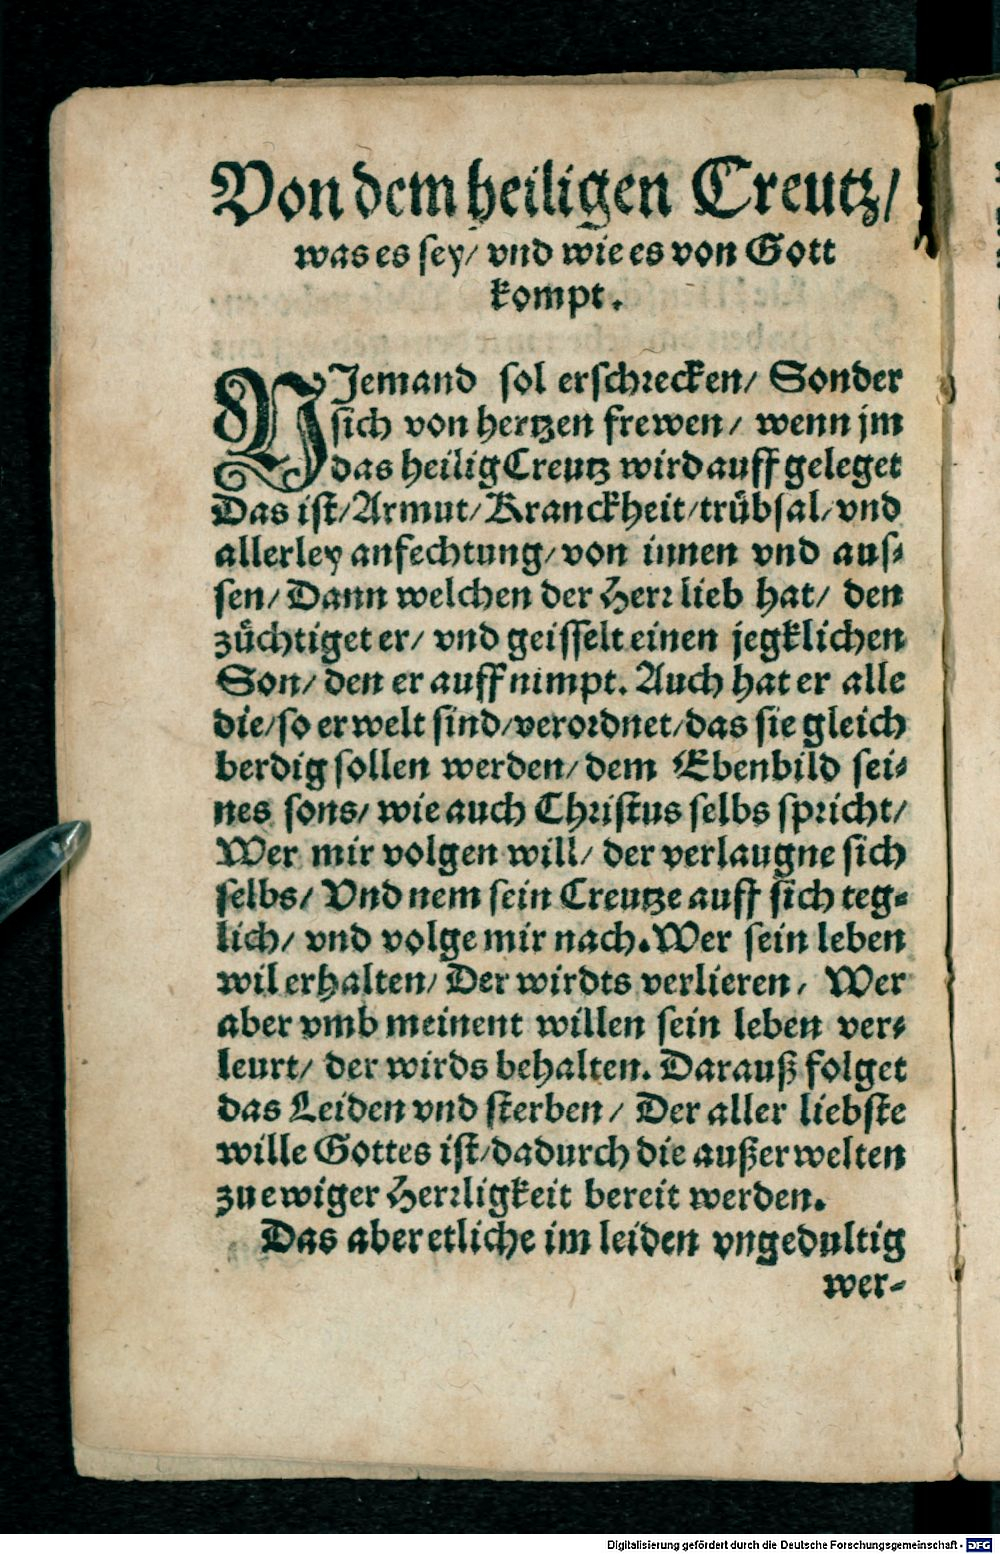 Von dem heiligen Creutz/
was es sey/ vnd wie es von Gott
kompt.
NJemand sol erschrecken/ Sonder
sich von hertzen frewen/ wenn jm
das heilig Creutz wird auff geleget
Das ist/ Armut/ Kranckheit/ trübsal/ vnd
allerley anfechtung/ von innen vnd aus-
sen/ Dann welchen der Herr lieb hat/ den
züchtiget er/ vnd geisselt einen jegklichen
Son/ den er auff nimpt. Auch hat er alle
die/ so erwelt sind/ verordnet/ das sie gleich
berdig sollen werden/ dem Ebenbild sei-
nes sons/ wie auch Christus selbs spricht/
Wer mir volgen will/ der verlaugne sich
selbs/ Vnd nem sein Creutze auff sich teg-
lich/ vnd volge mir nach. Wer sein leben
wil erhalten/ Der wirdts verlieren/ Wer
aber vmb meinent willen sein leben ver-
leurt/ der wirds behalten. Darauß folget
das Leiden vnd sterben/ Der aller liebste
wille Gottes ist/ dadurch die außerwelten
zu ewiger Herrligkeit bereit werden.
Das aber etliche im leiden vngedultig
wer-
Digitalisierung gefördert durch die Deutsche Forschungsgemeinschaft - DFG